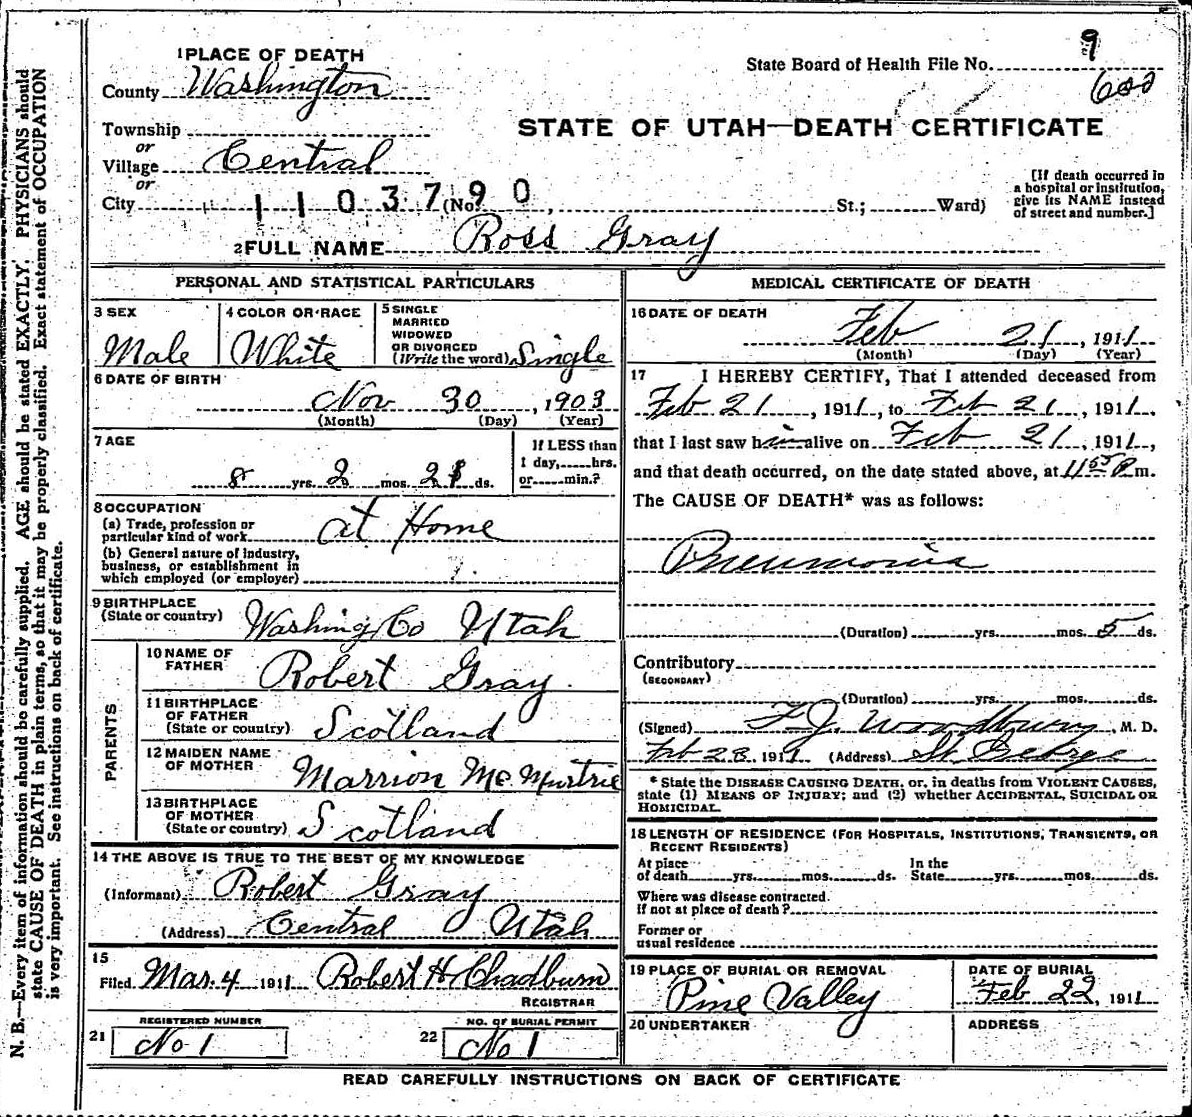 N. B.—Every item of information should be carefully supplied. AGE should be stated EXACTLY. PHYSICIANS should
state CAUSE OF DEATH in plain terms, so that it may be properly classified. Exact statement of OCCUPATION
is very important. See instructions on back of certificate.
1 PLACE OF DEATH
County Washington
Township
or
Village Central
or
City
State Board of Health File No. 9
602
STATE OF UTAH—DEATH CERTIFICATE
1103790
(No. , St.; Ward)
[If death occurred in
a hospital or institution,
give its NAME instead
of street and number.]
2 FULL NAME Ross Gray
PERSONAL AND STATISTICAL PARTICULARS
3 SEX
Male
4 COLOR OR RACE
White
5 SINGLE
MARRIED
WIDOWED
OR DIVORCED
(Write the word) Single
6 DATE OF BIRTH
Nov 30, 1903
(Month) (Day) (Year)
7 AGE
8 yrs. 2 mos. 21 ds.
If LESS than
1 day, hrs.
or min.?
8 OCCUPATION
(a) Trade, profession or
particular kind of work at Home
(b) General nature of industry,
business, or establishment in
which employed (or employer)
9 BIRTHPLACE
(State or country) Washing Co Utah
PARENTS
10 NAME OF
FATHER Robert Gray.
11 BIRTHPLACE
OF FATHER
(State or country) Scotland
12 MAIDEN NAME
OF MOTHER Marrion McMurtrie
13 BIRTHPLACE
OF MOTHER
(State or country) Scotland
14 THE ABOVE IS TRUE TO THE BEST OF MY KNOWLEDGE
(Informant) Robert Gray
(Address) Central Utah
15
Filed Mar. 4 1911 Robert H Chadburn
REGISTRAR
REGISTERED NUMBER
21 No 1
NO. OF BURIAL PERMIT
22 No 1
MEDICAL CERTIFICATE OF DEATH
16 DATE OF DEATH
Feb 21, 1911
(Month) (Day) (Year)
17 I HEREBY CERTIFY, That I attended deceased from
Feb 21, 1911, to Feb 21, 1911,
that I last saw him alive on Feb 21, 1911,
and that death occurred, on the date stated above, at 11 55 P m.
The CAUSE OF DEATH* was as follows:
Pneumonia
(Duration) yrs. mos. 5 ds.
Contributory
(SECONDARY)
(Duration) yrs. mos. ds.
(Signed) F. J. Woodbury, M. D.
Feb 28, 1911 (Address) St George
* State the DISEASE CAUSING DEATH, or, in deaths from VIOLENT CAUSES,
state (1) MEANS OF INJURY; and (2) whether ACCIDENTAL, SUICIDAL OR
HOMICIDAL.
18 LENGTH OF RESIDENCE (FOR HOSPITALS, INSTITUTIONS, TRANSIENTS, OR
RECENT RESIDENTS)
At place
of death yrs. mos. ds.
In the
State yrs. mos. ds.
Where was disease contracted.
if not at place of death?
Former or
usual residence
19 PLACE OF BURIAL OR REMOVAL
Pine Valley
DATE OF BURIAL
Feb 22, 1911
20 UNDERTAKER
ADDRESS
READ CAREFULLY INSTRUCTIONS ON BACK OF CERTIFICATE